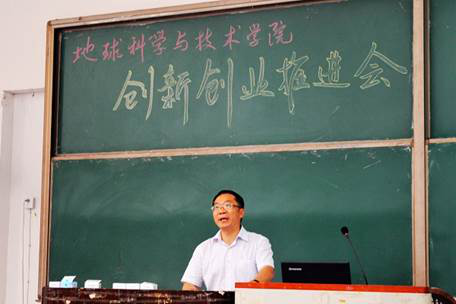 地球科学与技术学院
创新创业推进会
lenovo